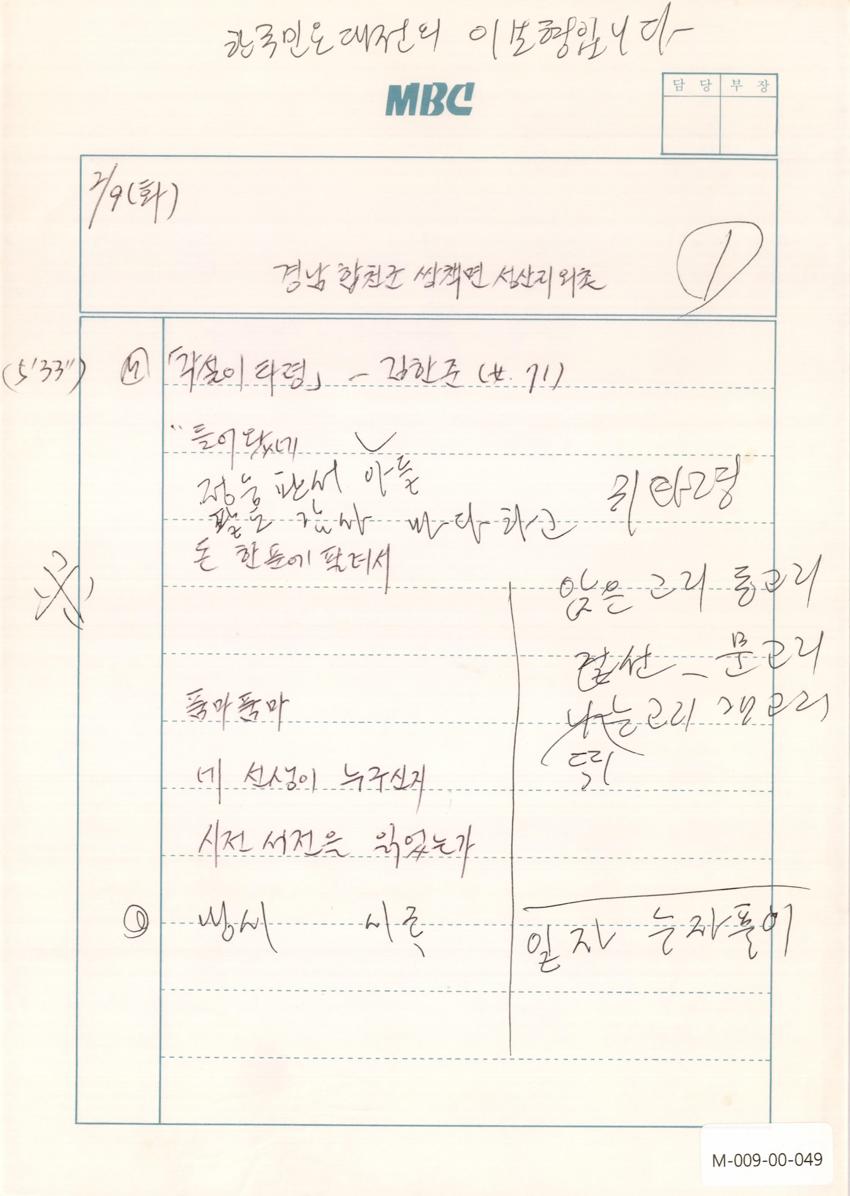 한국민요대전의 이보형입니다
MBC
담 당 부 장
2/9(화)
경남 합천군 쌍책면 성산리 외촌
①
(5'33") Ⓜ 「각설이 타령」 - 김한준 (女. 71)
"들어왔네
정승 판서 아들
팔도 감사 마다 하고
돈 한푼에 팔려서
품마품마
네 선생이 누구신지
시전 서전을 읽었는가
방씨 시족
귀타령
앉은 고리 동고리
선 문고리
나는 고리 개고리
뛰
일자 는자풀이
M-009-00-049